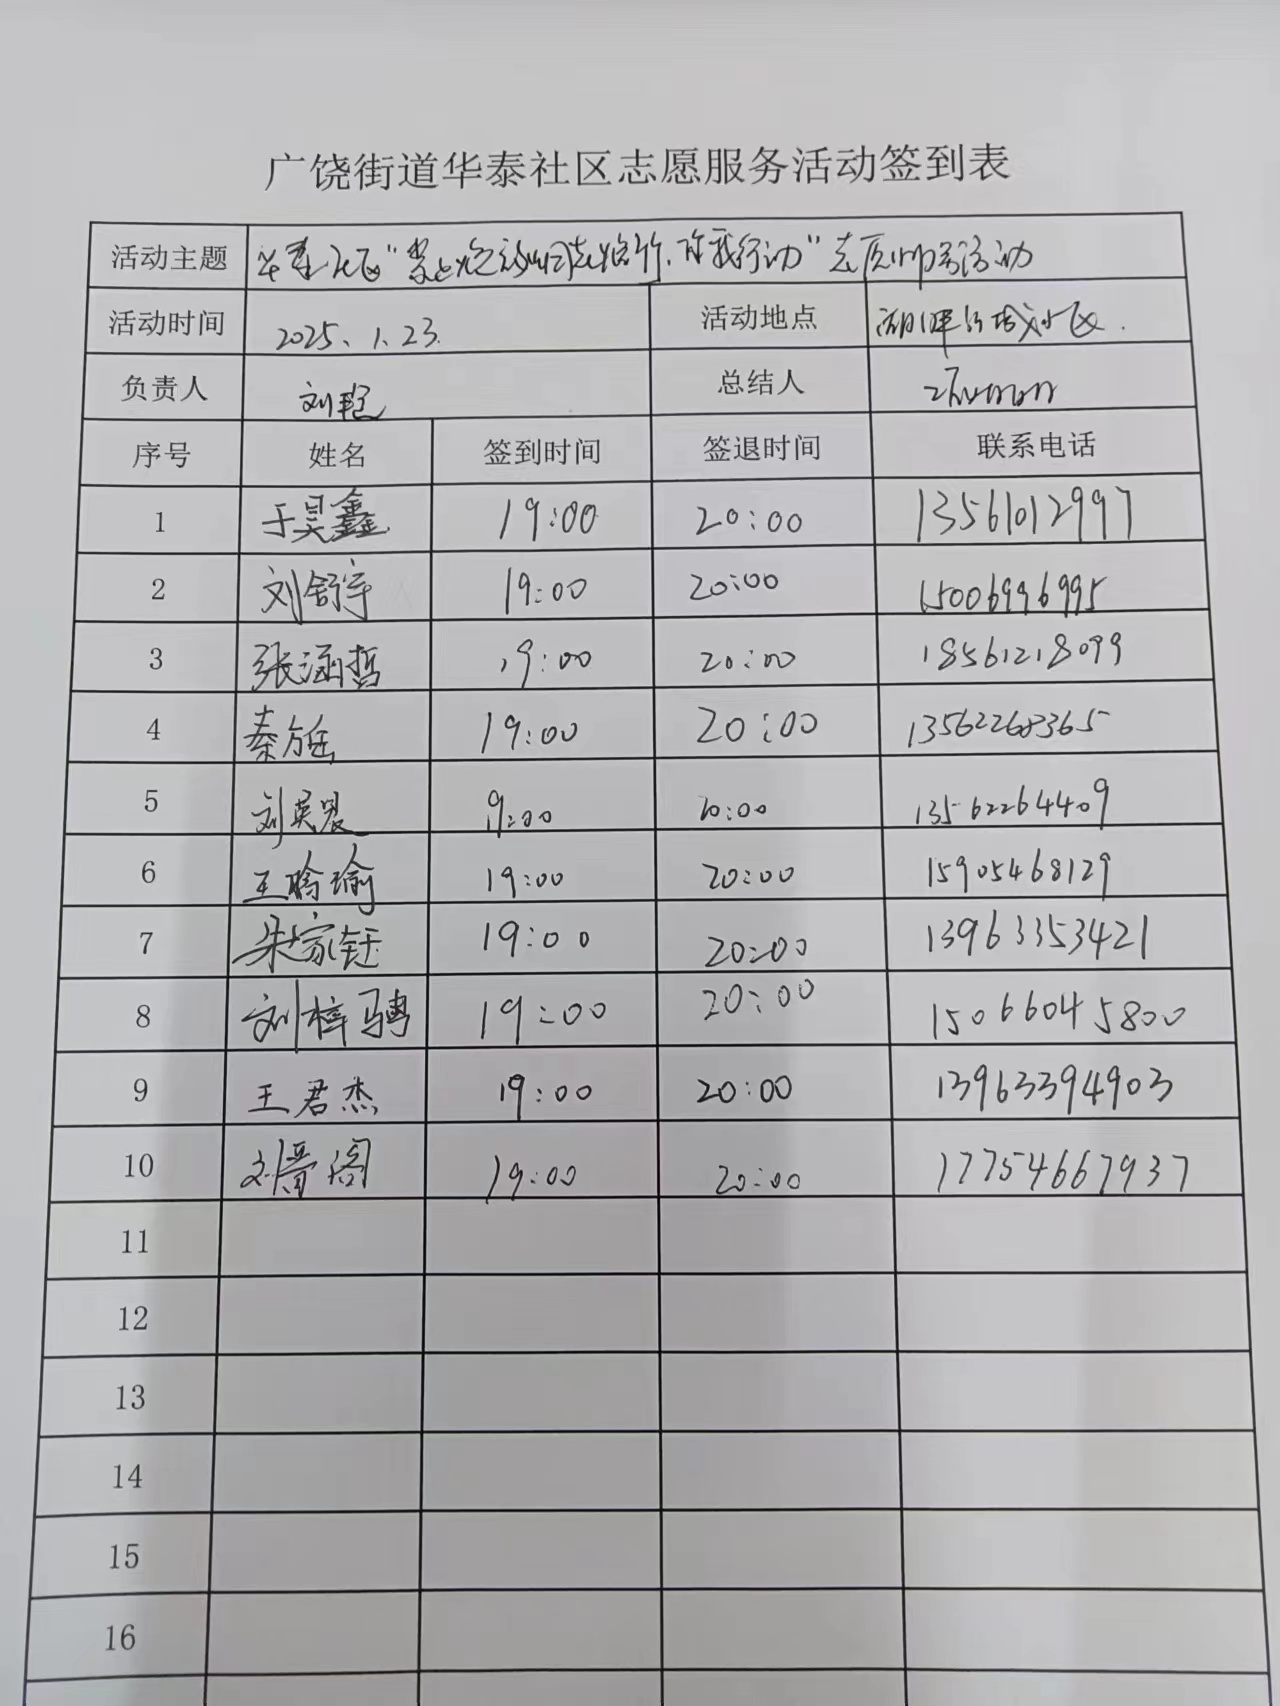 广饶街道华泰社区志愿服务活动签到表
活动主题 华泰社区 行动"志愿服务活动
活动时间 2025.1.23. 活动地点 小区.
负责人 刘艳 总结人
序号 姓名 签到时间 签退时间 联系电话
1 于昊鑫 19:00 20:00 13561012997
2 刘舒宇 19:00 20:00 15006996995
3 张涵哲 19:00 20:00 18561218099
4 秦 19:00 20:00 13562268365
5 刘英晟 19:00 20:00 13562264409
6 王晗瑜 19:00 20:00 15905468129
7 朱家钰 19:00 20:00 13963353421
8 刘梓骋 19:00 20:00 15066045800
9 王君杰 19:00 20:00 13963394903
10 刘晋阁 19:00 20:00 17754667937
11
12
13
14
15
16